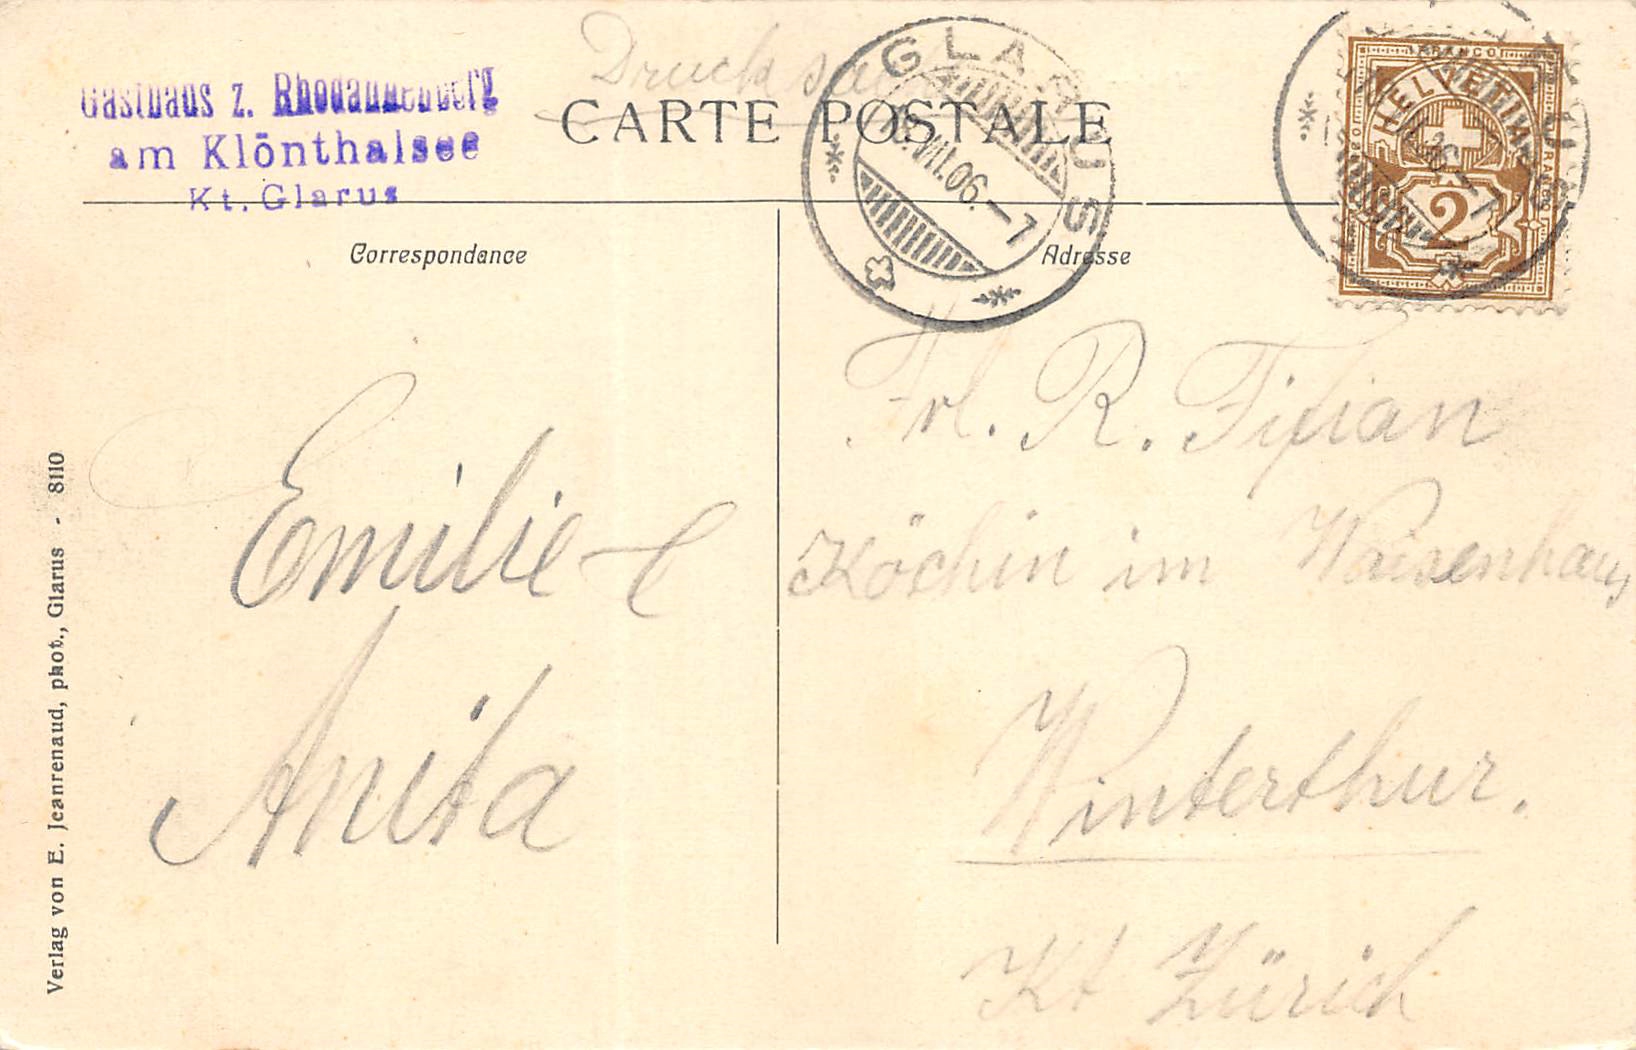 Drucksache
Gasthaus z. Rhodannenberg
am Klönthalsee
Kt. Glarus
CARTE POSTALE
GLARUS
VII.06.–7
FRANCO
HELVETIA
2
Correspondance
Adresse
Emilie
Anita
Frl. R. Fifian
Köchin im Waisenhaus
Winterthur.
Kt Zürich
Verlag von E. Jeanrenaud, phot., Glarus - 8110